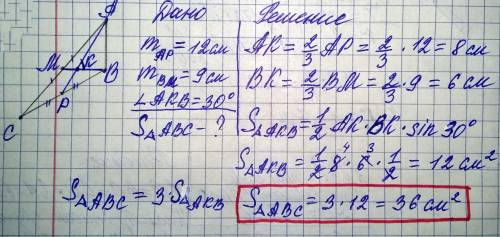 Дано
m_AP = 12 см
m_BM = 9 см
∠AKB = 30°
S△ABC - ?
Решение
AK = 2/3 AP = 2/3 · 12 = 8 см
BK = 2/3 BM = 2/3 · 9 = 6 см
S△AKB = 1/2 AK · BK · sin 30°
S△AKB = 1/2 8 ⁴ · 6 ³ · 1/2 = 12 см²
S△ABC = 3 · S△AKB
S△ABC = 3 · 12 = 36 см²
A
M
K
B
P
C